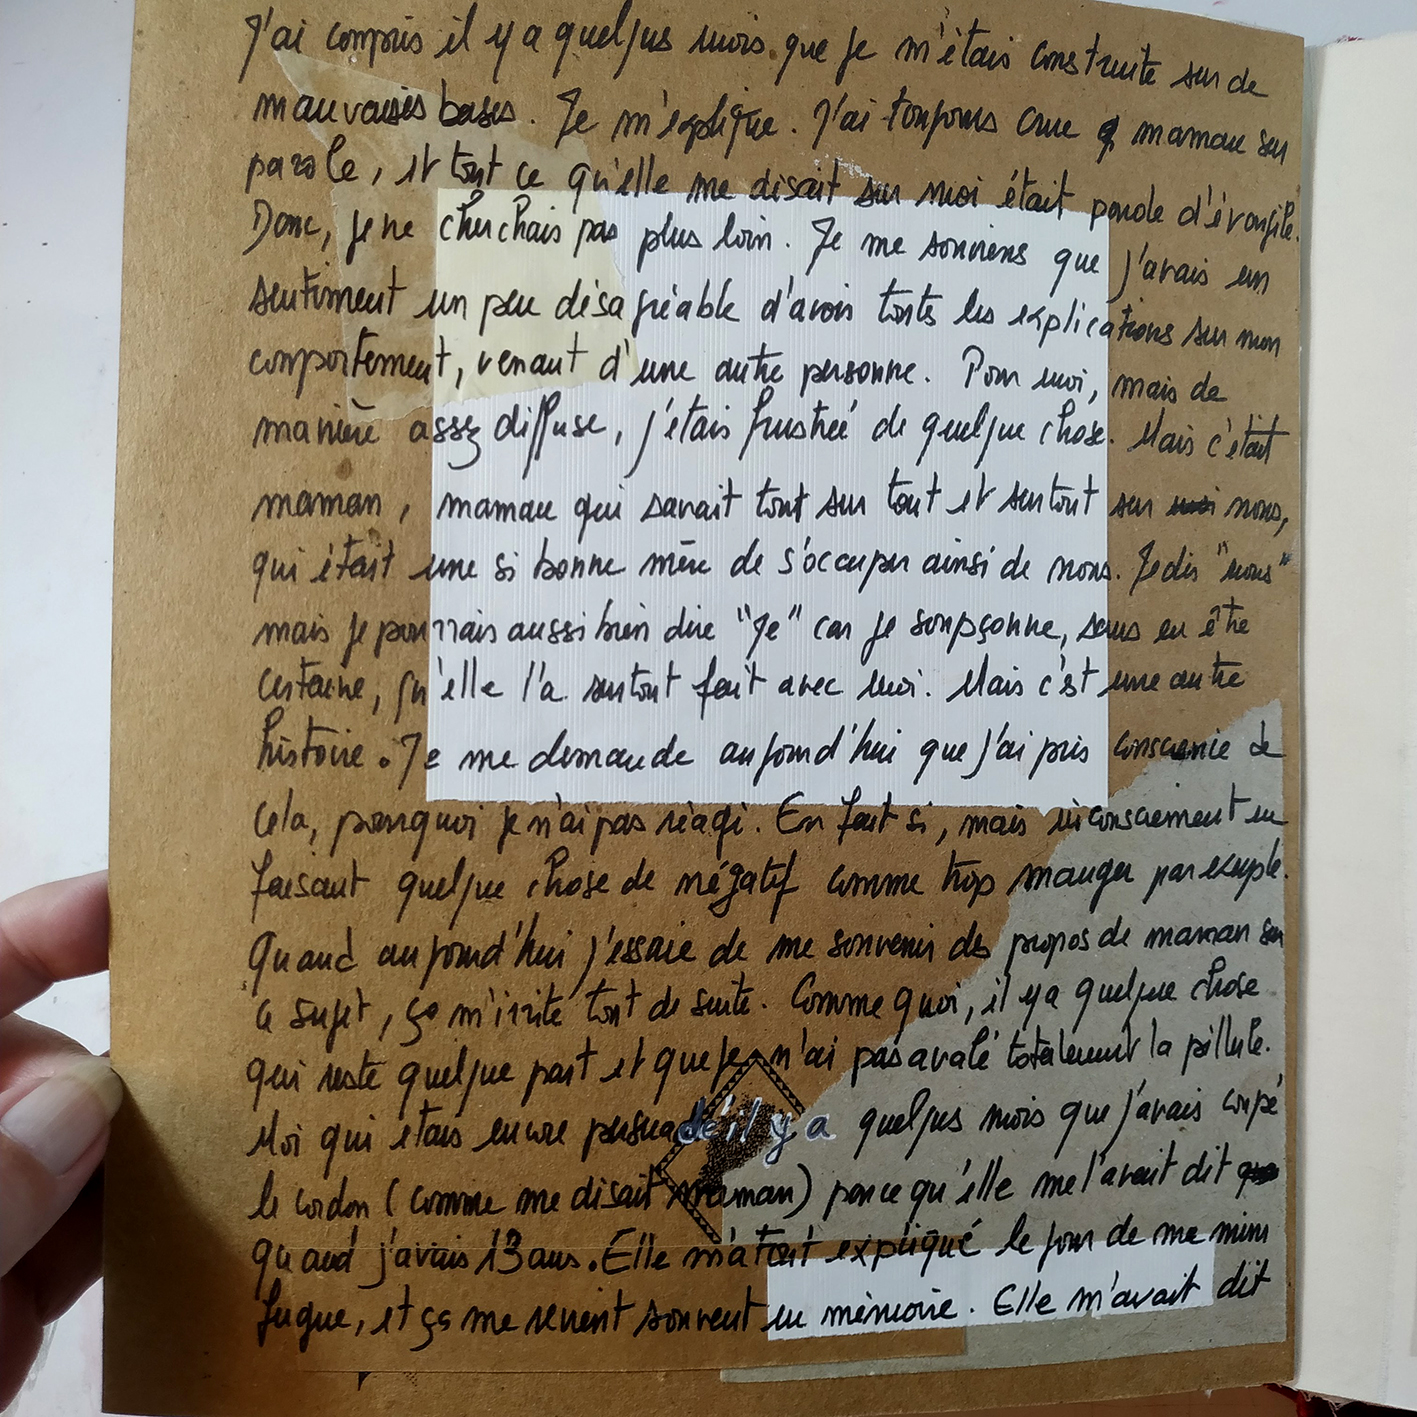 J'ai compris il y a quelques mois que je m'étais construite sur de
mauvaises bases. Je m'explique. J'ai toujours crue maman sur
parole, et tout ce qu'elle me disait sur moi était parole d'évangile.
Donc, je ne cherchais pas plus loin. Je me souviens que j'avais un
sentiment un peu désagréable d'avoir toutes les explications sur mon
comportement, venant d'une autre personne. Pour moi, mais de
manière assez diffuse, j'étais frustrée de quelque chose. Mais c'était
maman, maman qui savait tout sur tout et surtout sur nous,
qui était une si bonne mère de s'occuper ainsi de nous. Je dis "nous"
mais je pourrais aussi bien dire "Je" car je soupçonne, sans en être
certaine, qu'elle l'a surtout fait avec moi. Mais c'est une autre
histoire. Je me demande aujourd'hui que j'ai pris conscience de
cela, pourquoi je n'ai pas réagi. En fait si, mais inconsciement en
faisant quelque chose de négatif comme trop manger par exemple.
Quand aujourd'hui j'essaie de me souvenir des propos de maman sur
ce sujet, ça m'irrite tout de suite. Comme quoi, il y a quelque chose
qui reste quelque part et que je n'ai pas avalé totalement la pillule.
Moi qui étais encore persuadé il y a quelques mois que j'avais coupé
le cordon (comme me disait maman) parce qu'elle me l'avait dit
quand j'avais 13 ans. Elle m'a tout expliqué le jour de ma mini
fugue, et ça me revient souvent en mémoire. Elle m'avait dit